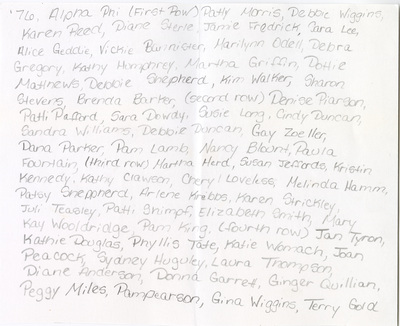 '76. Alpha Phi (First Row) Patty Morris, Debbe Wiggins,
Karen Reed, Diane Steele, Jamie Fredrick, Cara Lee,
Alice Geddie, Vickie Bannister, Marilynn Odell, Debra
Gregory, Kathy Humphrey, Martha Griffin, Dottie
Matthews, Debbie Shepherd, Kim Walker, Sharon
Stevens, Brenda Barker, (second row) Denise Pearson,
Patti Ballard, Sara Dowdy, Susie Long, Cindy Duncan,
Sandra Williams, Debbie Duncan, Gay Zoeller,
Dana Parker, Pam Lamb, Nancy Blount, Paula
Fountain, (third row) Martha Herd, Susan Jeffords, Kristin
Kennedy, Kathy Clawson, Cheryl Loveless, Melinda Hamm,
Patsy Shepperd, Arlene Knabbs, Karen Strickley,
Juli Teasley, Patti Shimpf, Elizabeth Smith, Mary
Kay Wooldridge, Pam King, (fourth row) Jan Tyron,
Kathie Douglas, Phyllis Tate, Katie Womach, Joan
Peacock, Sydney Huguley, Laura Thompson,
Diane Anderson, Donna Garrett, Ginger Quillian,
Peggy Miles, Pam Pearson, Gina Wiggins, Terry Gold